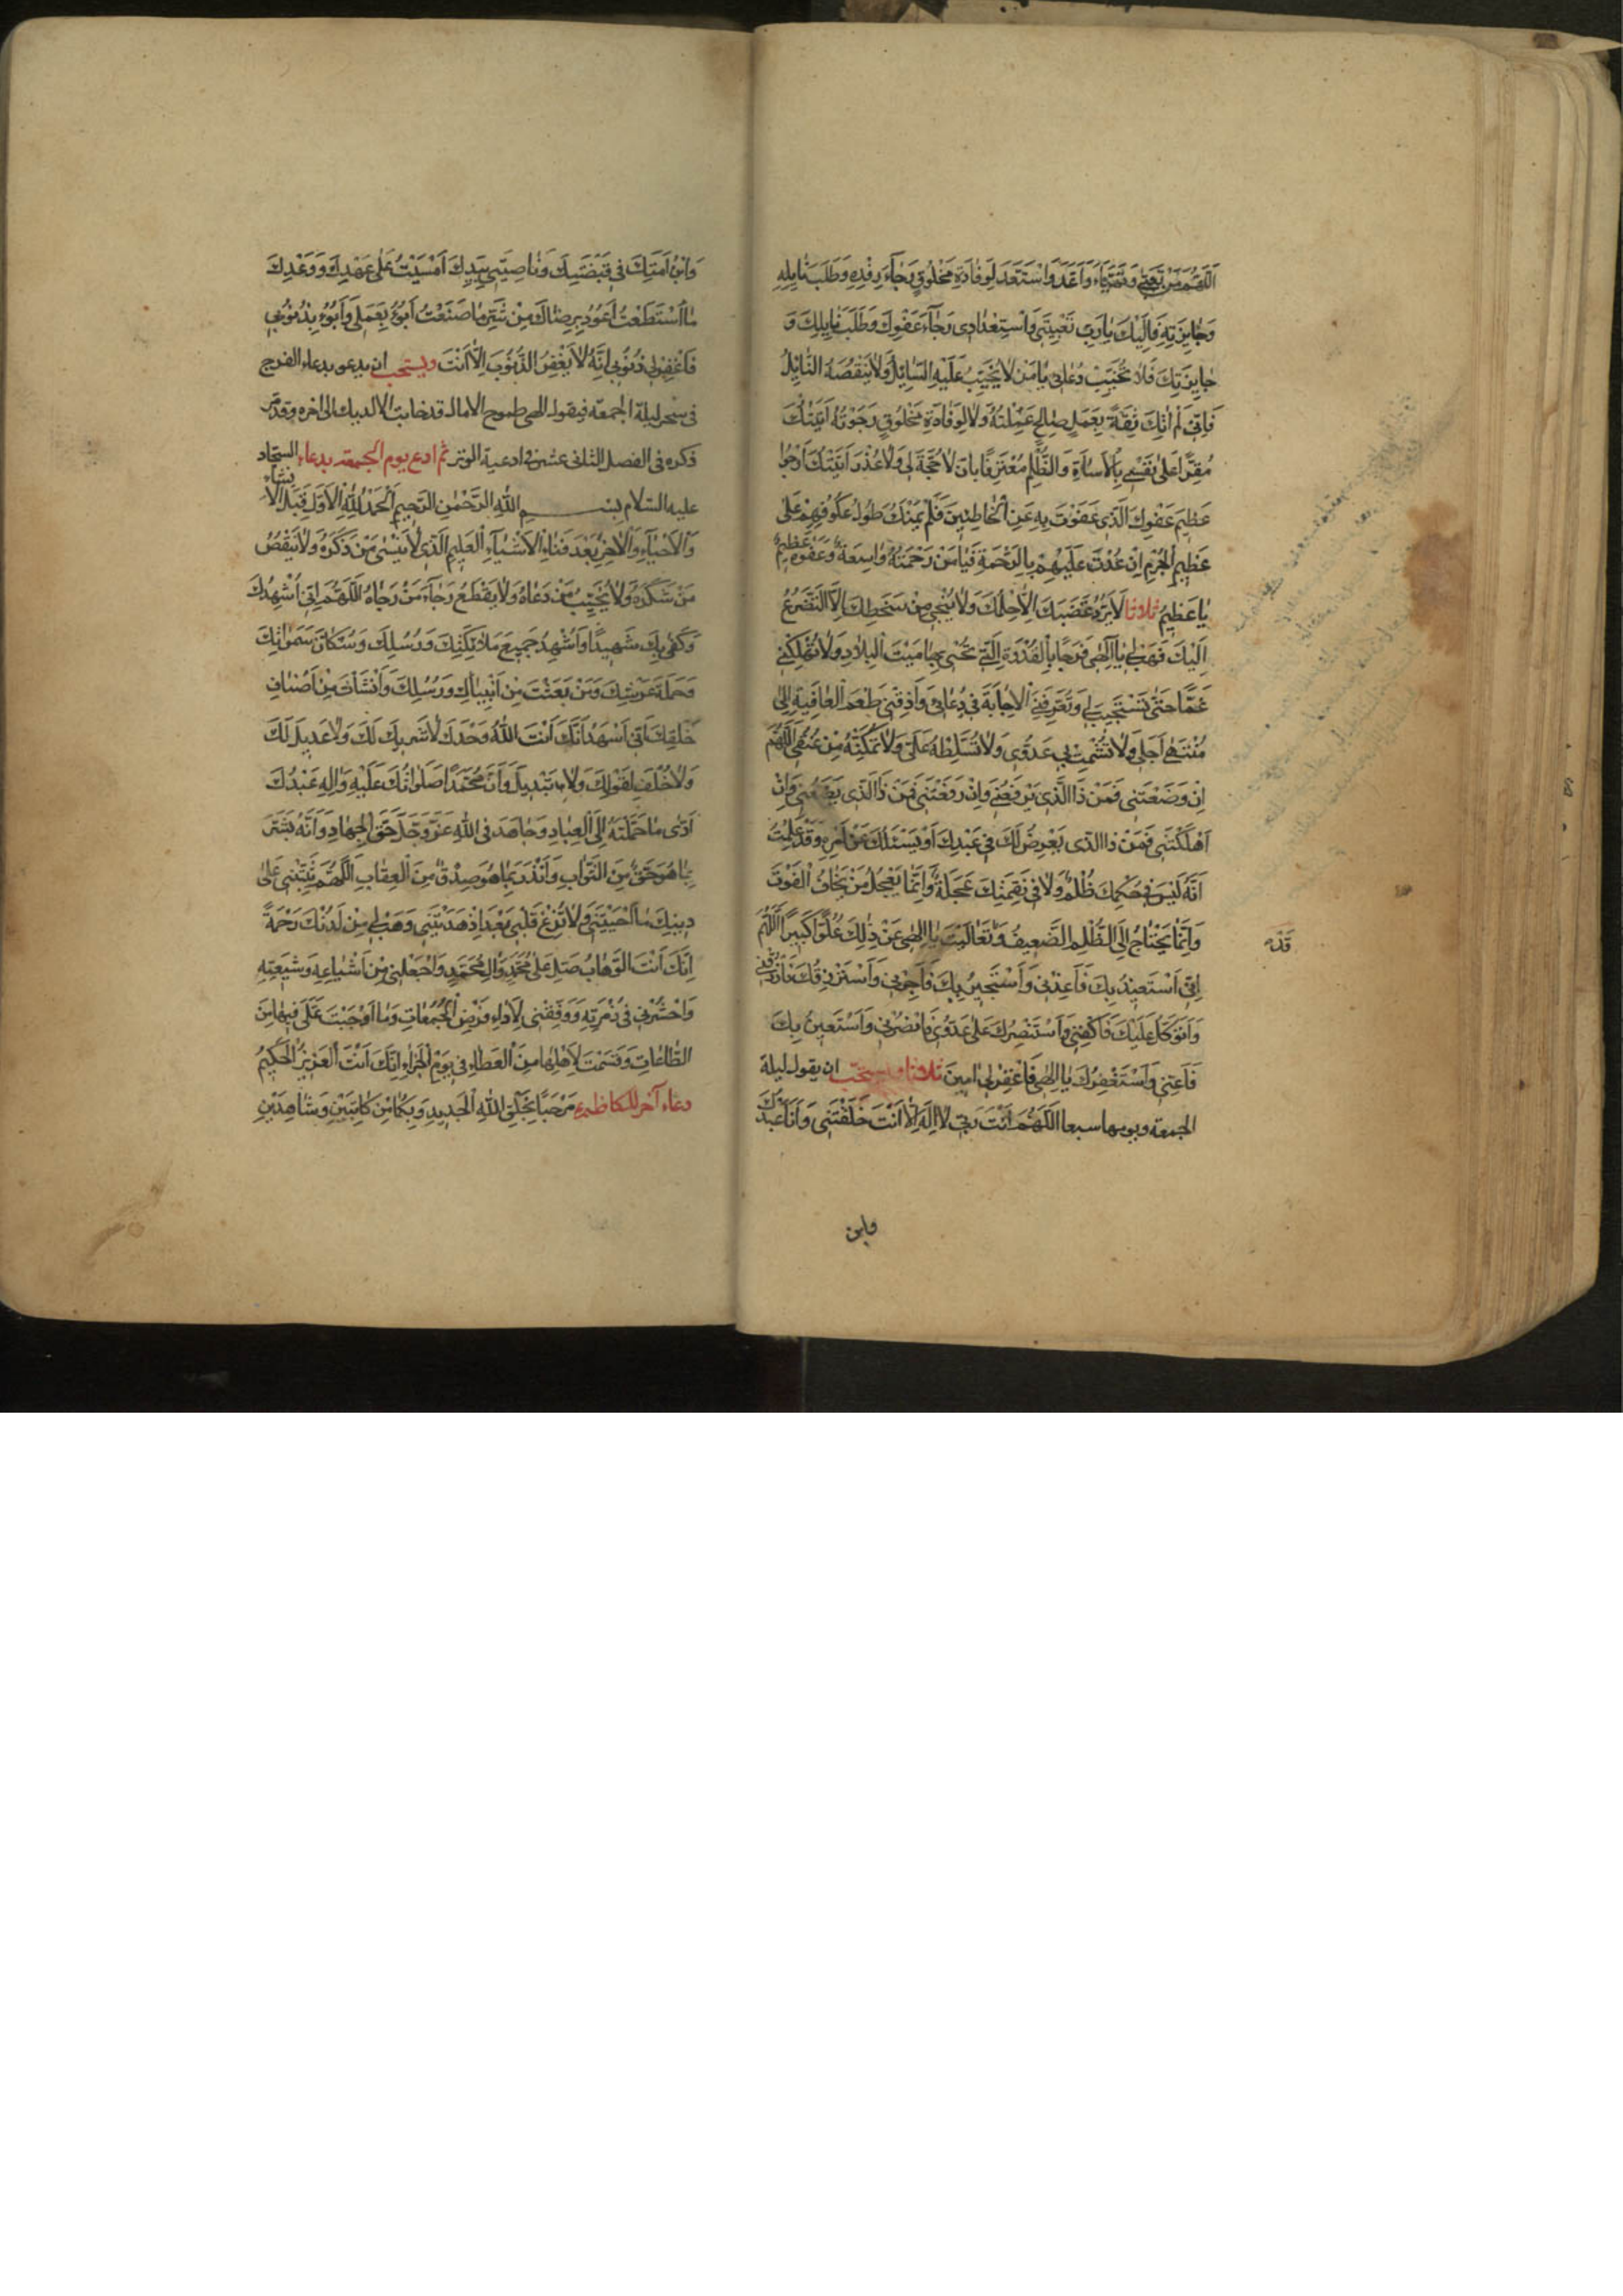 اَللّٰهُمَّ مَنْ تَعَبَّى وَتَهَيَّأَ وَاَعَدَّ وَاسْتَعَدَّ لِوِفَادَةٍ مَخْلُوقٍ رَجَآءَ رِفْدِهِ وَطَلَبَ نَايِلِهِ
وَجَايِزَتِهِ فَاِلَيْكَ يَارَبِّ تَعْبِيَتِي وَاسْتِعْدَادِي رَجَآءَ عَفْوِكَ وَطَلَبَ نَايِلِكَ وَ
جَايِزَتِكَ فَلَا تُخَيِّبْ دُعَائِي يَا مَنْ لَا يَخِيبُ عَلَيْهِ السَّائِلُ وَلَا يَنْقُصُهُ النَّائِلُ
فَاِنِّي لَمْ اٰتِكَ ثِقَةً بِعَمَلٍ صَالِحٍ عَمِلْتُهُ وَلَا لِوِفَادَةِ مَخْلُوقٍ رَجَوْتُهُ اَتَيْتُكَ
مُقِرًّا عَلَى نَفْسِي بِالْاِسَاءَةِ وَالظُّلْمِ مُعْتَرِفًا بِاَنْ لَا حُجَّةَ لِي وَلَا عُذْرَ اَتَيْتُكَ اَرْجُوا
عَظِيمَ عَفْوِكَ الَّذِي عَفَوْتَ بِهِ عَنِ الْخَاطِئِينَ فَلَمْ يَمْنَعْكَ طُولُ عُكُوفِهِمْ عَلٰى
عَظِيمِ الْجُرْمِ اِنْ عُدْتَ عَلَيْهِمْ بِالرَّحْمَةِ فَيَا مَنْ رَحْمَتُهُ وَاسِعَةٌ وَعَفْوُهُ عَظِيمٌ
يَا عَظِيمُ ثلاثا لَا يَرُدُّ غَضَبَكَ اِلَّا حِلْمُكَ وَلَا يُنْجِي مِنْ سَخَطِكَ اِلَّا التَّضَرُّعُ
اِلَيْكَ فَهَبْ لِي يَا اِلٰهِي فَرَجًا بِالْقُدْرَةِ الَّتِي تُحْيِي بِهَا مَيْتَ الْبِلَادِ وَلَا تُهْلِكْنِي
غَمًّا حَتّٰى تَسْتَجِيبَ لِي وَتُعَرِّفَنِي الْاِجَابَةَ فِي دُعَائِي وَاَذِقْنِي طَعْمَ الْعَافِيَةِ اِلٰى
مُنْتَهٰى اَجَلِي وَلَا تُشْمِتْ بِي عَدُوِّي وَلَا تُسَلِّطْهُ عَلَيَّ وَلَا تُمَكِّنْهُ مِنْ عُنُقِي اَللّٰهُمَّ
اِنْ وَضَعْتَنِي فَمَنْ ذَا الَّذِي يَرْفَعُنِي وَاِنْ رَفَعْتَنِي فَمَنْ ذَا الَّذِي يَضَعُنِي وَاِنْ
اَهْلَكْتَنِي فَمَنْ ذَا الَّذِي يَعْرِضُ لَكَ فِي عَبْدِكَ اَوْ يَسْئَلُكَ عَنْ اَمْرِهِ وَقَدْ عَلِمْتُ
اَنَّهُ لَيْسَ فِي حُكْمِكَ ظُلْمٌ وَلَا فِي نَقِمَتِكَ عَجَلَةٌ وَاِنَّمَا يَعْجَلُ مَنْ يَخَافُ الْفَوْتَ
وَاِنَّمَا يَحْتَاجُ اِلَى الظُّلْمِ الضَّعِيفُ وَتَعَالَيْتَ يَا اِلٰهِي عَنْ ذٰلِكَ عُلُوًّا كَبِيرًا اَللّٰهُمَّ
قَدْ
اِنِّي اَسْتَعِيذُ بِكَ فَاَعِذْنِي وَاَسْتَجِيرُ بِكَ فَاَجِرْنِي وَاَسْتَرْزِقُكَ فَارْزُقْنِي
وَاَتَوَكَّلُ عَلَيْكَ فَاكْفِنِي وَاَسْتَنْصِرُكَ عَلٰى عَدُوِّي فَانْصُرْنِي وَاَسْتَعِينُ بِكَ
فَاَعِنِّي وَاَسْتَغْفِرُكَ يَا اِلٰهِي فَاغْفِرْ لِي اٰمِينَ ثلاثا ويستحب ان يقول ليلة
الجمعة ويومها سبعا اَللّٰهُمَّ اَنْتَ رَبِّي لَا اِلٰهَ اِلَّا اَنْتَ خَلَقْتَنِي وَاَنَا عَبْدُكَ
وابن
وَابْنُ اَمَتِكَ فِي قَبْضَتِكَ وَنَاصِيَتِي بِيَدِكَ اَمْسَيْتُ عَلٰى عَهْدِكَ وَوَعْدِكَ
مَا اسْتَطَعْتُ اَعُوذُ بِرِضَاكَ مِنْ شَرِّ مَا صَنَعْتُ اَبُوءُ بِعَمَلِي وَاَبُوءُ بِذُنُوبِي
فَاغْفِرْ لِي ذُنُوبِي اِنَّهُ لَا يَغْفِرُ الذُّنُوبَ اِلَّا اَنْتَ ويستحب ان يدعو بدعاء الفرج
فى سحر ليلة الجمعة فيقول الهى طموح الامال قد خابت الا لديك الى اخره وقد مرّ
ذكره فى الفصل الثانى عشر فى ادعية الوتر ثم ادع يوم الجمعة بدعاء السجّاد
عليه السّلام بِسْمِ اللّٰهِ الرَّحْمٰنِ الرَّحِيمِ اَلْحَمْدُ لِلّٰهِ الْاَوَّلِ قَبْلَ الْاِنْشَاءِ
وَالْاَحْيَاءِ وَالْاٰخِرِ بَعْدَ فَنَاءِ الْاَشْيَاءِ الْعَلِيمِ الَّذِي لَا يَنْسٰى مَنْ ذَكَرَهُ وَلَا يَنْقُصُ
مَنْ شَكَرَهُ وَلَا يُخَيِّبُ مَنْ دَعَاهُ وَلَا يَقْطَعُ رَجَاءَ مَنْ رَجَاهُ اَللّٰهُمَّ اِنِّي اُشْهِدُكَ
وَكَفٰى بِكَ شَهِيدًا وَاُشْهِدُ جَمِيعَ مَلَائِكَتِكَ وَرُسُلِكَ وَسُكَّانَ سَمٰوَاتِكَ
وَحَمَلَةَ عَرْشِكَ وَمَنْ بَعَثْتَ مِنْ اَنْبِيَائِكَ وَرُسُلِكَ وَاَنْشَأْتَ مِنْ اَصْنَافِ
خَلْقِكَ اَنِّي اَشْهَدُ اَنَّكَ اَنْتَ اللّٰهُ وَحْدَكَ لَا شَرِيكَ لَكَ وَلَا عَدِيلَ لَكَ
وَلَا خُلْفَ لِقَوْلِكَ وَلَا تَبْدِيلَ وَاَنَّ مُحَمَّدًا صَلَوَاتُكَ عَلَيْهِ وَاٰلِهِ عَبْدُكَ
اَدّٰى مَا حَمَّلْتَهُ اِلَى الْعِبَادِ وَجَاهَدَ فِي اللّٰهِ عَزَّ وَجَلَّ حَقَّ الْجِهَادِ وَاَنَّهُ بَشَّرَ
بِمَا هُوَ حَقٌّ مِنَ الثَّوَابِ وَاَنْذَرَ بِمَا هُوَ صِدْقٌ مِنَ الْعِقَابِ اَللّٰهُمَّ ثَبِّتْنِي عَلٰى
دِينِكَ مَا اَحْيَيْتَنِي وَلَا تُزِغْ قَلْبِي بَعْدَ اِذْ هَدَيْتَنِي وَهَبْ لِي مِنْ لَدُنْكَ رَحْمَةً
اِنَّكَ اَنْتَ الْوَهَّابُ صَلِّ عَلٰى مُحَمَّدٍ وَاٰلِ مُحَمَّدٍ وَاجْعَلْنِي مِنْ اَشْيَاعِهِ وَشِيعَتِهِ
وَاحْشُرْنِي فِي زُمْرَتِهِ وَوَفِّقْنِي لِاَدَاءِ فَرْضِ الْجُمُعَاتِ وَمَا اَوْجَبْتَ عَلَيَّ فِيهَا مِنَ
الطَّاعَاتِ وَقَسَمْتَ لِاَهْلِهَا مِنَ الْعَطَاءِ فِي يَوْمِ الْجَزَاءِ اِنَّكَ اَنْتَ الْعَزِيزُ الْحَكِيمُ
دعاء آخر للكاظم ع مَرْحَبًا بِخَلْقِ اللّٰهِ الْجَدِيدِ وَبِكُمَا مِنْ كَاتِبَيْنِ وَشَاهِدَيْنِ